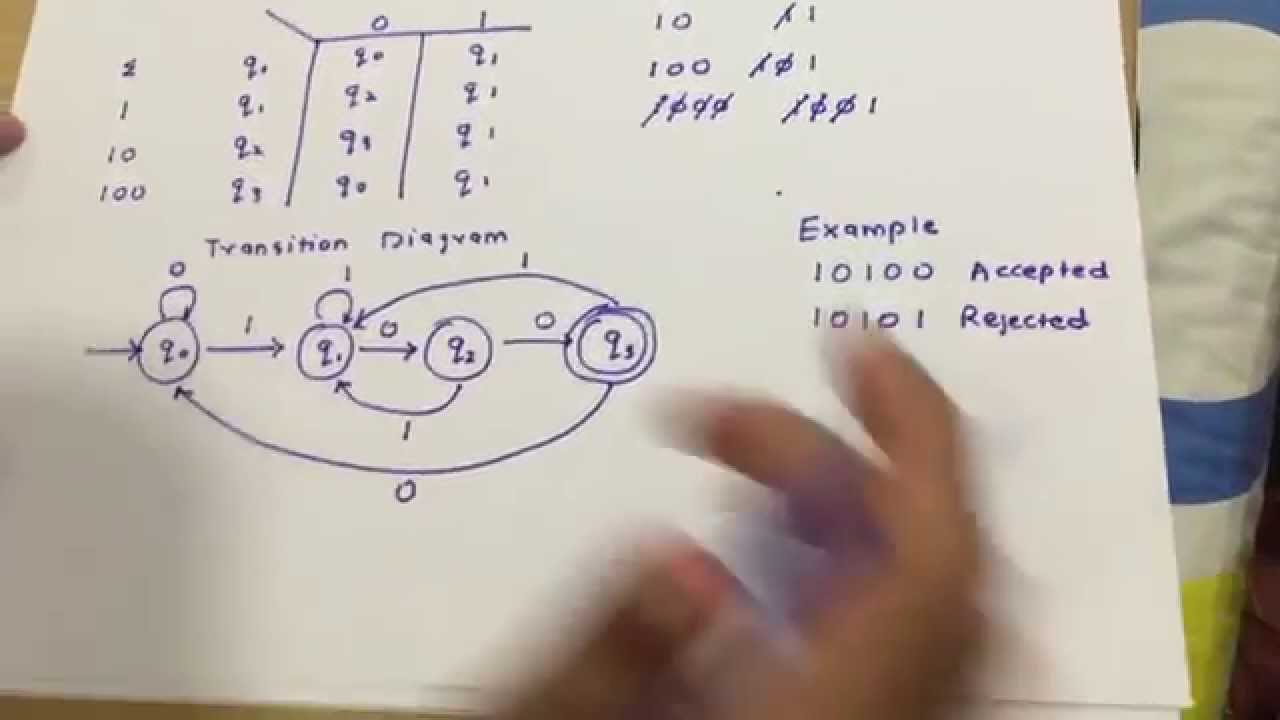 0 1
ε q0 q0 q1
1 q1 q2 q1
10 q2 q3 q1
100 q3 q0 q1
10 11
100 101
1000 1001
Transition Diagram
0 1 1
q0 1 q1 0 q2 0 q3
1
0
Example
10100 Accepted
10101 Rejected